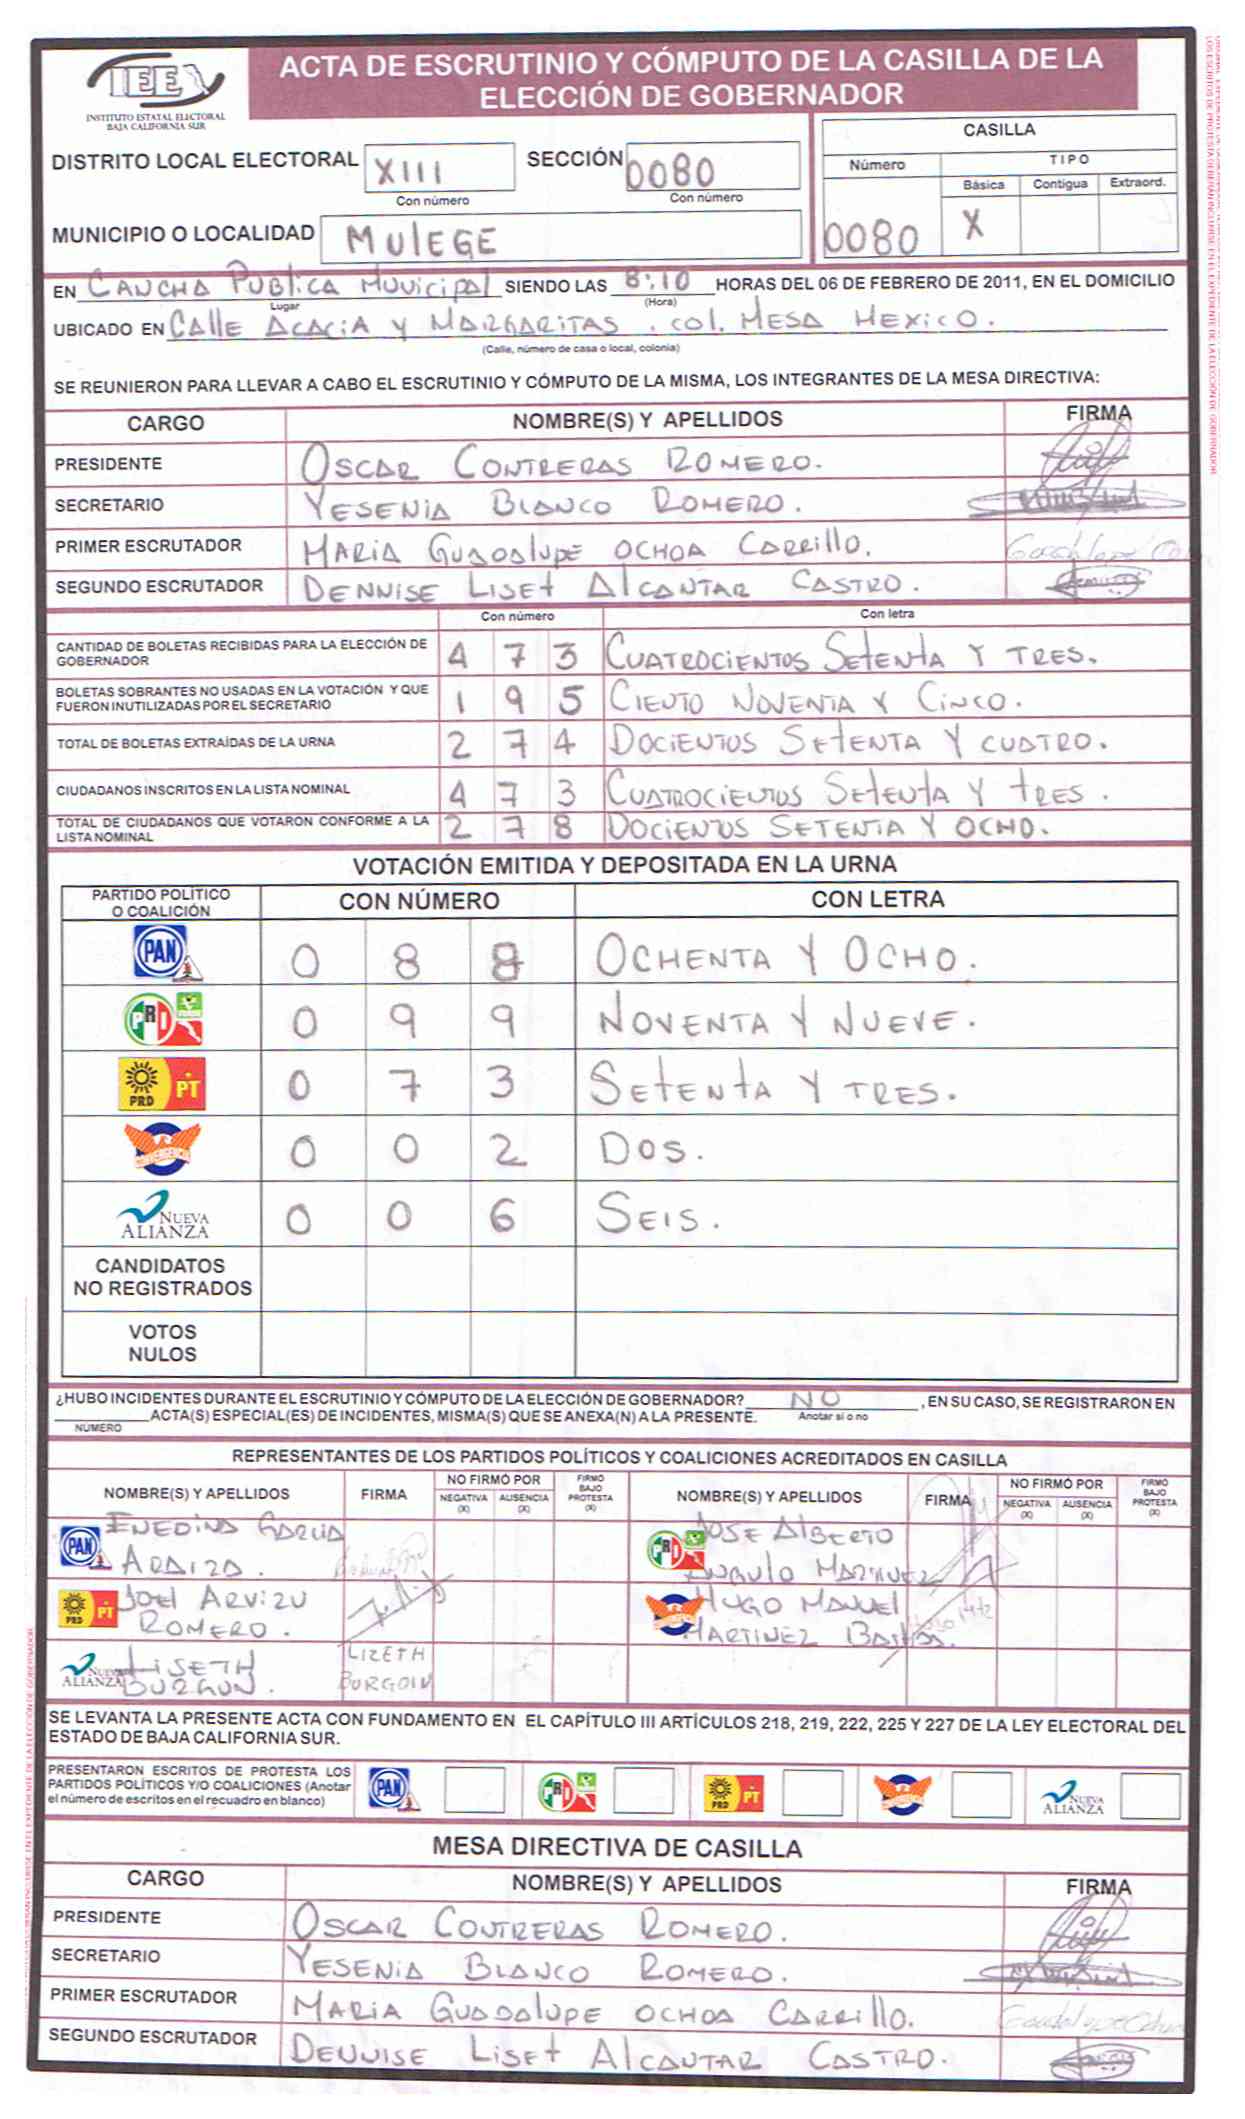 IEE
INSTITUTO ESTATAL ELECTORAL
BAJA CALIFORNIA SUR
ACTA DE ESCRUTINIO Y CÓMPUTO DE LA CASILLA DE LA
ELECCIÓN DE GOBERNADOR
DISTRITO LOCAL ELECTORAL XIII SECCIÓN 0080
Con número Con número
MUNICIPIO O LOCALIDAD MULEGE
CASILLA
Número TIPO
Básica Contigua Extraord.
0080 X
EN CANCHA PUBLICA MUNICIPAL SIENDO LAS 8:10 HORAS DEL 06 DE FEBRERO DE 2011, EN EL DOMICILIO
Lugar (Hora)
UBICADO EN CALLE ACACIA Y MARGARITAS . COL. MESA MEXICO.
(Calle, número de casa o local, colonia)
SE REUNIERON PARA LLEVAR A CABO EL ESCRUTINIO Y CÓMPUTO DE LA MISMA, LOS INTEGRANTES DE LA MESA DIRECTIVA:
CARGO NOMBRE(S) Y APELLIDOS FIRMA
PRESIDENTE OSCAR CONTRERAS ROMERO.
SECRETARIO YESENIA BLANCO ROMERO.
PRIMER ESCRUTADOR MARIA GUADALUPE OCHOA CARRILLO. Guadalupe
SEGUNDO ESCRUTADOR DENNISE LISET ALCANTAR CASTRO.
Con número Con letra
CANTIDAD DE BOLETAS RECIBIDAS PARA LA ELECCIÓN DE
GOBERNADOR 4 7 3 CUATROCIENTOS SETENTA Y TRES.
BOLETAS SOBRANTES NO USADAS EN LA VOTACIÓN Y QUE
FUERON INUTILIZADAS POR EL SECRETARIO 1 9 5 CIENTO NOVENTA Y CINCO.
TOTAL DE BOLETAS EXTRAÍDAS DE LA URNA 2 7 4 DOCIENTOS SETENTA Y CUATRO.
CIUDADANOS INSCRITOS EN LA LISTA NOMINAL 4 7 3 CUATROCIENTOS SETENTA Y TRES.
TOTAL DE CIUDADANOS QUE VOTARON CONFORME A LA
LISTA NOMINAL 2 7 8 DOCIENTOS SETENTA Y OCHO.
VOTACIÓN EMITIDA Y DEPOSITADA EN LA URNA
PARTIDO POLÍTICO
O COALICIÓN CON NÚMERO CON LETRA
PAN 0 8 8 OCHENTA Y OCHO.
PRI 0 9 9 NOVENTA Y NUEVE.
PRD PT 0 7 3 SETENTA Y TRES.
CONVERGENCIA 0 0 2 DOS.
NUEVA ALIANZA 0 0 6 SEIS.
CANDIDATOS
NO REGISTRADOS
VOTOS
NULOS
¿HUBO INCIDENTES DURANTE EL ESCRUTINIO Y CÓMPUTO DE LA ELECCIÓN DE GOBERNADOR? NO , EN SU CASO, SE REGISTRARON EN
ACTA(S) ESPECIAL(ES) DE INCIDENTES, MISMA(S) QUE SE ANEXA(N) A LA PRESENTE. Anotar sí o no
NÚMERO
REPRESENTANTES DE LOS PARTIDOS POLÍTICOS Y COALICIONES ACREDITADOS EN CASILLA
NOMBRE(S) Y APELLIDOS FIRMA NO FIRMÓ POR NEGATIVA (X) AUSENCIA (X) FIRMÓ BAJO PROTESTA (X) NOMBRE(S) Y APELLIDOS FIRMA NO FIRMÓ POR NEGATIVA (X) AUSENCIA (X) FIRMÓ BAJO PROTESTA (X)
PAN ENEDINA GARCIA PRI JOSE ALBERTO
ARAIZA. ANGULO MARQUEZ
PRD PT JOEL ARVIZU HUGO MANUEL
ROMERO. MARTINEZ
NUEVA ALIANZA LISETH LIZETH
BURGOIN. BURGOIN
SE LEVANTA LA PRESENTE ACTA CON FUNDAMENTO EN EL CAPÍTULO III ARTÍCULOS 218, 219, 222, 225 Y 227 DE LA LEY ELECTORAL DEL
ESTADO DE BAJA CALIFORNIA SUR.
PRESENTARON ESCRITOS DE PROTESTA LOS
PARTIDOS POLÍTICOS Y/O COALICIONES (Anotar
el número de escritos en el recuadro en blanco) PAN PRI PRD PT NUEVA ALIANZA
MESA DIRECTIVA DE CASILLA
CARGO NOMBRE(S) Y APELLIDOS FIRMA
PRESIDENTE OSCAR CONTRERAS ROMERO.
SECRETARIO YESENIA BLANCO ROMERO.
PRIMER ESCRUTADOR MARIA GUADALUPE OCHOA CARRILLO. Guadalupe Ochoa
SEGUNDO ESCRUTADOR DENNISE LISET ALCANTAR CASTRO.